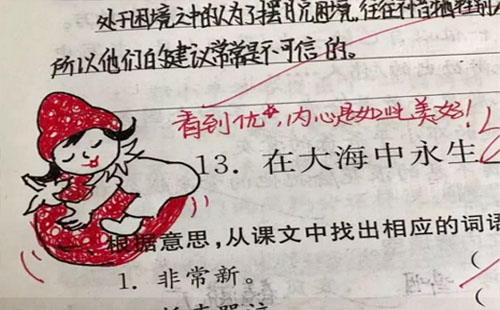 处于困境之中的人为了摆脱困境,往往不惜牺牲别人
所以他们的建议常常是不可信的。
看到优☆,内心是如此美好!
13. 在大海中永生
一、根据意思,从课文中找出相应的词语
1. 非常新。 (